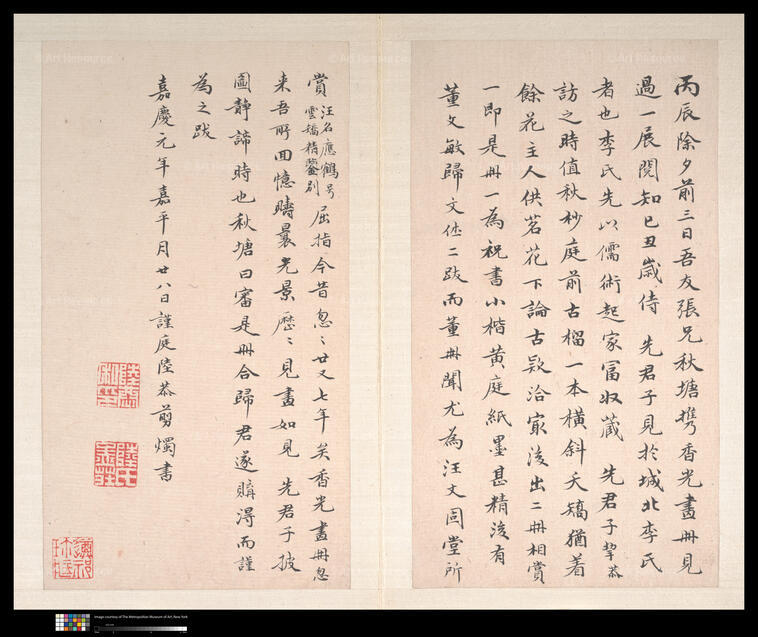 丙辰除夕前三日吾友張兄秋塘携香光畫冊見
過一展閱知已丑歲侍 先君子見於城北李氏
者也李氏先以儒術起家富收藏 先君子挈恭
訪之時值秋杪庭前古榴一本橫斜夭矯猶着
餘花主人供茗花下論古款洽寂後出二冊相賞
一即是冊一為祝書小楷黃庭紙墨甚精後有
董文敏歸文休二跋而董冊聞尤為汪文固堂所
賞 汪名應鶴号
雲矯精鑒别
屈指今昔忽〻廿又七年矣香光畫冊忽
来吾所回憶疇曩光景歷〻見畫如見 先君子披
圖靜諦時也秋塘曰審是冊合歸君遂購得而謹
為之跋
嘉慶元年嘉平月廿八日謹庭陸恭剪燭書
Image courtesy of The Metropolitan Museum of Art, New York